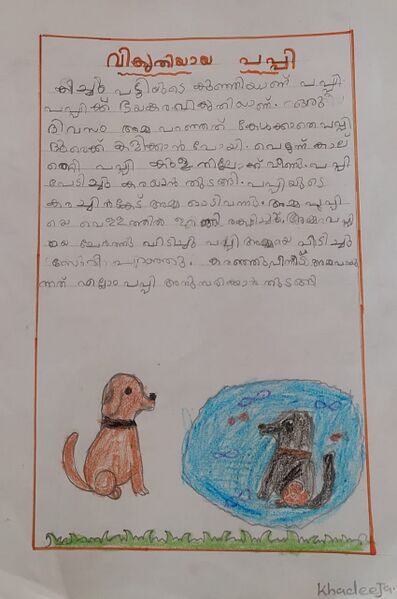 വികൃതിയായ പപ്പി
കിച്ചു പട്ടിയുടെ കുഞ്ഞിയാണ് പപ്പി.
പപ്പിക്ക് ഭയങ്കര വികൃതിയാണ്. ഒരു
ദിവസം അമ്മ പറഞ്ഞത് കേൾക്കാതെ പപ്പി
ദൂരേക്ക് കളിക്കാൻ പോയി. പെട്ടന്ന് കാല്
തെറ്റി പപ്പി വീണു. പപ്പി
പേടിച്ചു കരയാൻ തുടങ്ങി. പപ്പിയുടെ
കരച്ചിൽകേട്ട് അമ്മ ഓടിവന്നു. അമ്മ പപ്പി
യെ വെള്ളത്തിൽ ഇറങ്ങി രക്ഷിച്ചു. അമ്മ പപ്പി
യെ ചേർത്തു പിടിച്ചു പപ്പി അമ്മയെ പിടിച്ചു
കരഞ്ഞു. പിന്നീട് അമ്മ പറയു
ന്നത് എല്ലാം പപ്പി അനുസരിക്കാൻ തുടങ്ങി
Khadeeja.